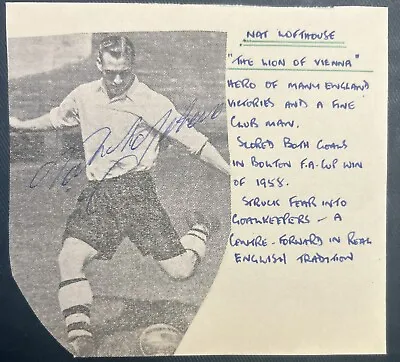 NAT LOFTHOUSE
"THE LION OF VIENNA"
HERO OF MANY ENGLAND
VICTORIES AND A FINE
CLUB MAN.
SCORED BOTH GOALS
IN BOLTON F.A. CUP WIN
OF 1958.
STRUCK FEAR INTO
GOALKEEPERS - A
CENTRE-FORWARD IN REAL
ENGLISH TRADITION
Nat Lofthouse